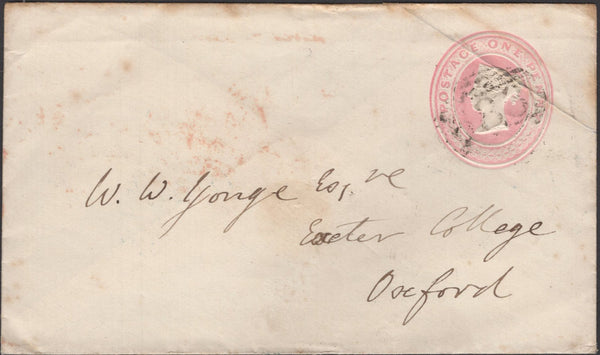 POSTAGE ONE PE
W. W. Yonge Esq.re
Exeter College
Oxford